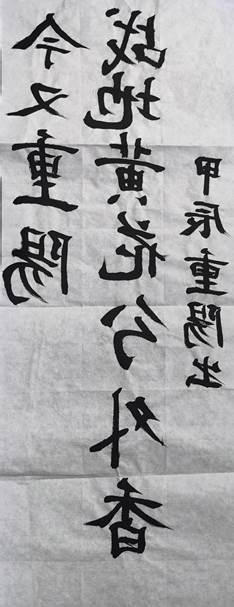 今又重陽
战地黃花分外香
甲辰重陽出